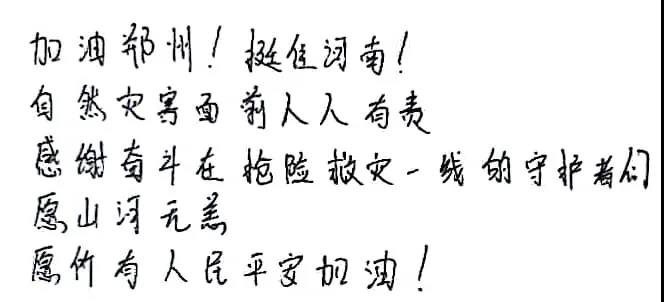 加油郑州！挺住河南！
自然灾害面前人人有责
感谢奋斗在抢险救灾一线的守护者们
愿山河无恙
愿所有人民平安加油！